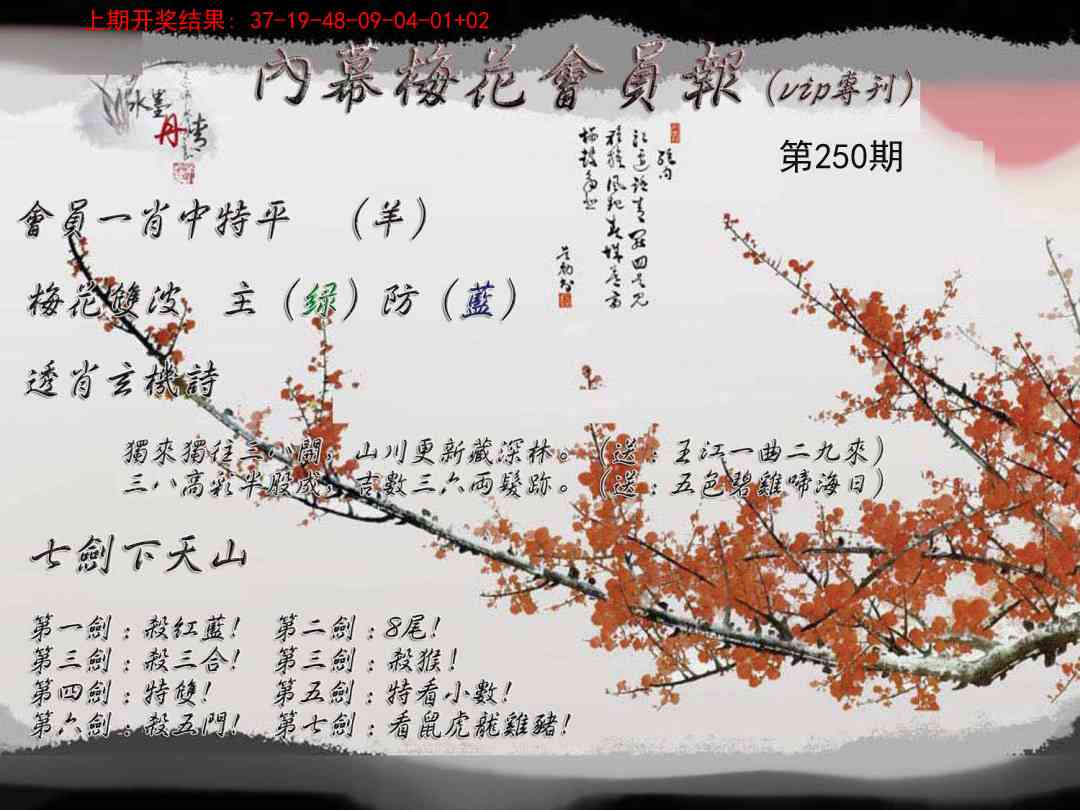 上期开奖结果: 37-19-48-09-04-01+02
內幕梅花會員報(vip專刊)
水墨
丹青
第250期
會員一肖中特平 (羊)
梅花雙波 主(绿)防(藍)
透肖玄機詩
獨來獨往三八開,山川更新藏深林。(送:王江一曲二九來)
三八高彩半股成,吉數三六兩髮跡。(送:五色碧雞啼海日)
七劍下天山
第一劍:殺紅藍! 第二劍:8尾!
第三劍:殺三合! 第三劍:殺猴!
第四劍:特雙! 第五劍:特看小數!
第六劍:殺五門! 第七劍:看鼠虎龍雞豬!